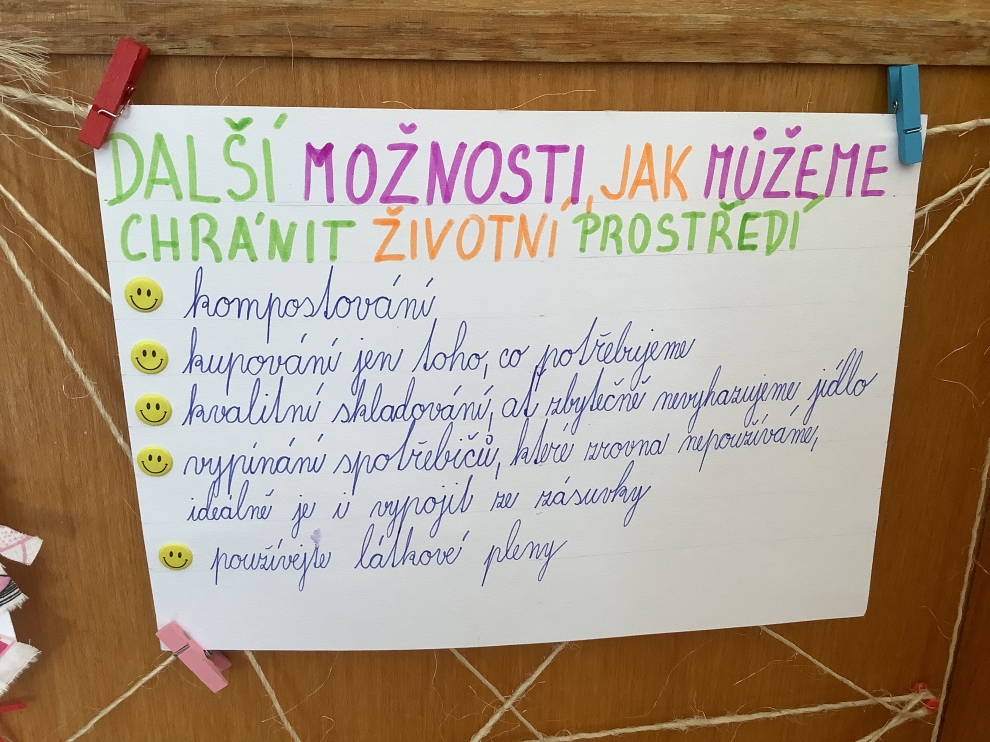 DALŠÍ MOŽNOSTI, JAK MŮŽEME
CHRÁNIT ŽIVOTNÍ PROSTŘEDÍ
kompostování
kupování jen toho, co potřebujeme
kvalitní skladování, ať zbytečně nevyhazujeme jídlo
vypínání spotřebičů, které zrovna nepoužíváme,
ideálně je i vypojit ze zásuvky
používejte látkové pleny